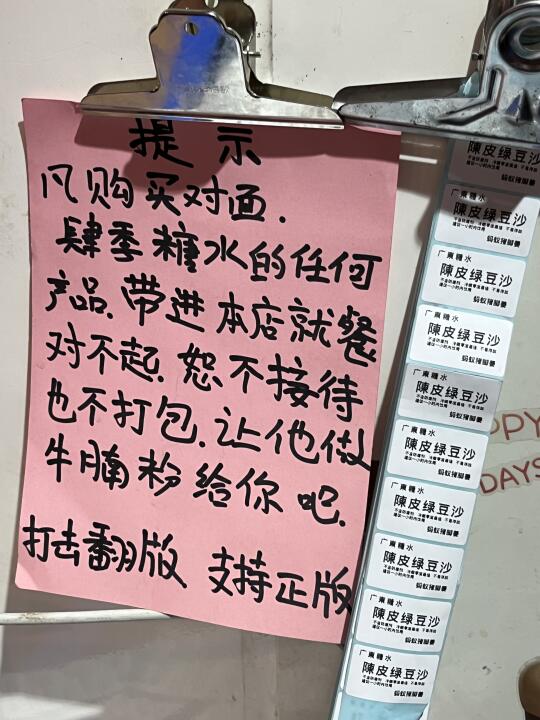 提示
凡购买对面.
肆季糖水的任何
产品.带进本店就餐
对不起.恕不接待
也不打包.让他做
牛腩粉给你吧.
打击翻版 支持正版
陳皮绿豆沙
广東糖水
陳皮绿豆沙
蚂蚁猪脚薑
广東糖水
陳皮绿豆沙
蚂蚁猪脚薑
广東糖水
陳皮绿豆沙
蚂蚁猪脚薑
广東糖水
陳皮绿豆沙
蚂蚁猪脚薑
广東糖水
陳皮绿豆沙
蚂蚁猪脚薑
广東糖水
陳皮绿豆沙
蚂蚁猪脚薑
广東糖水
陳皮绿豆沙
蚂蚁猪脚薑
广東糖水
陳皮绿豆沙
蚂蚁猪脚薑
广東糖水
陳皮绿豆沙
蚂蚁猪脚薑
PPY
DAYS